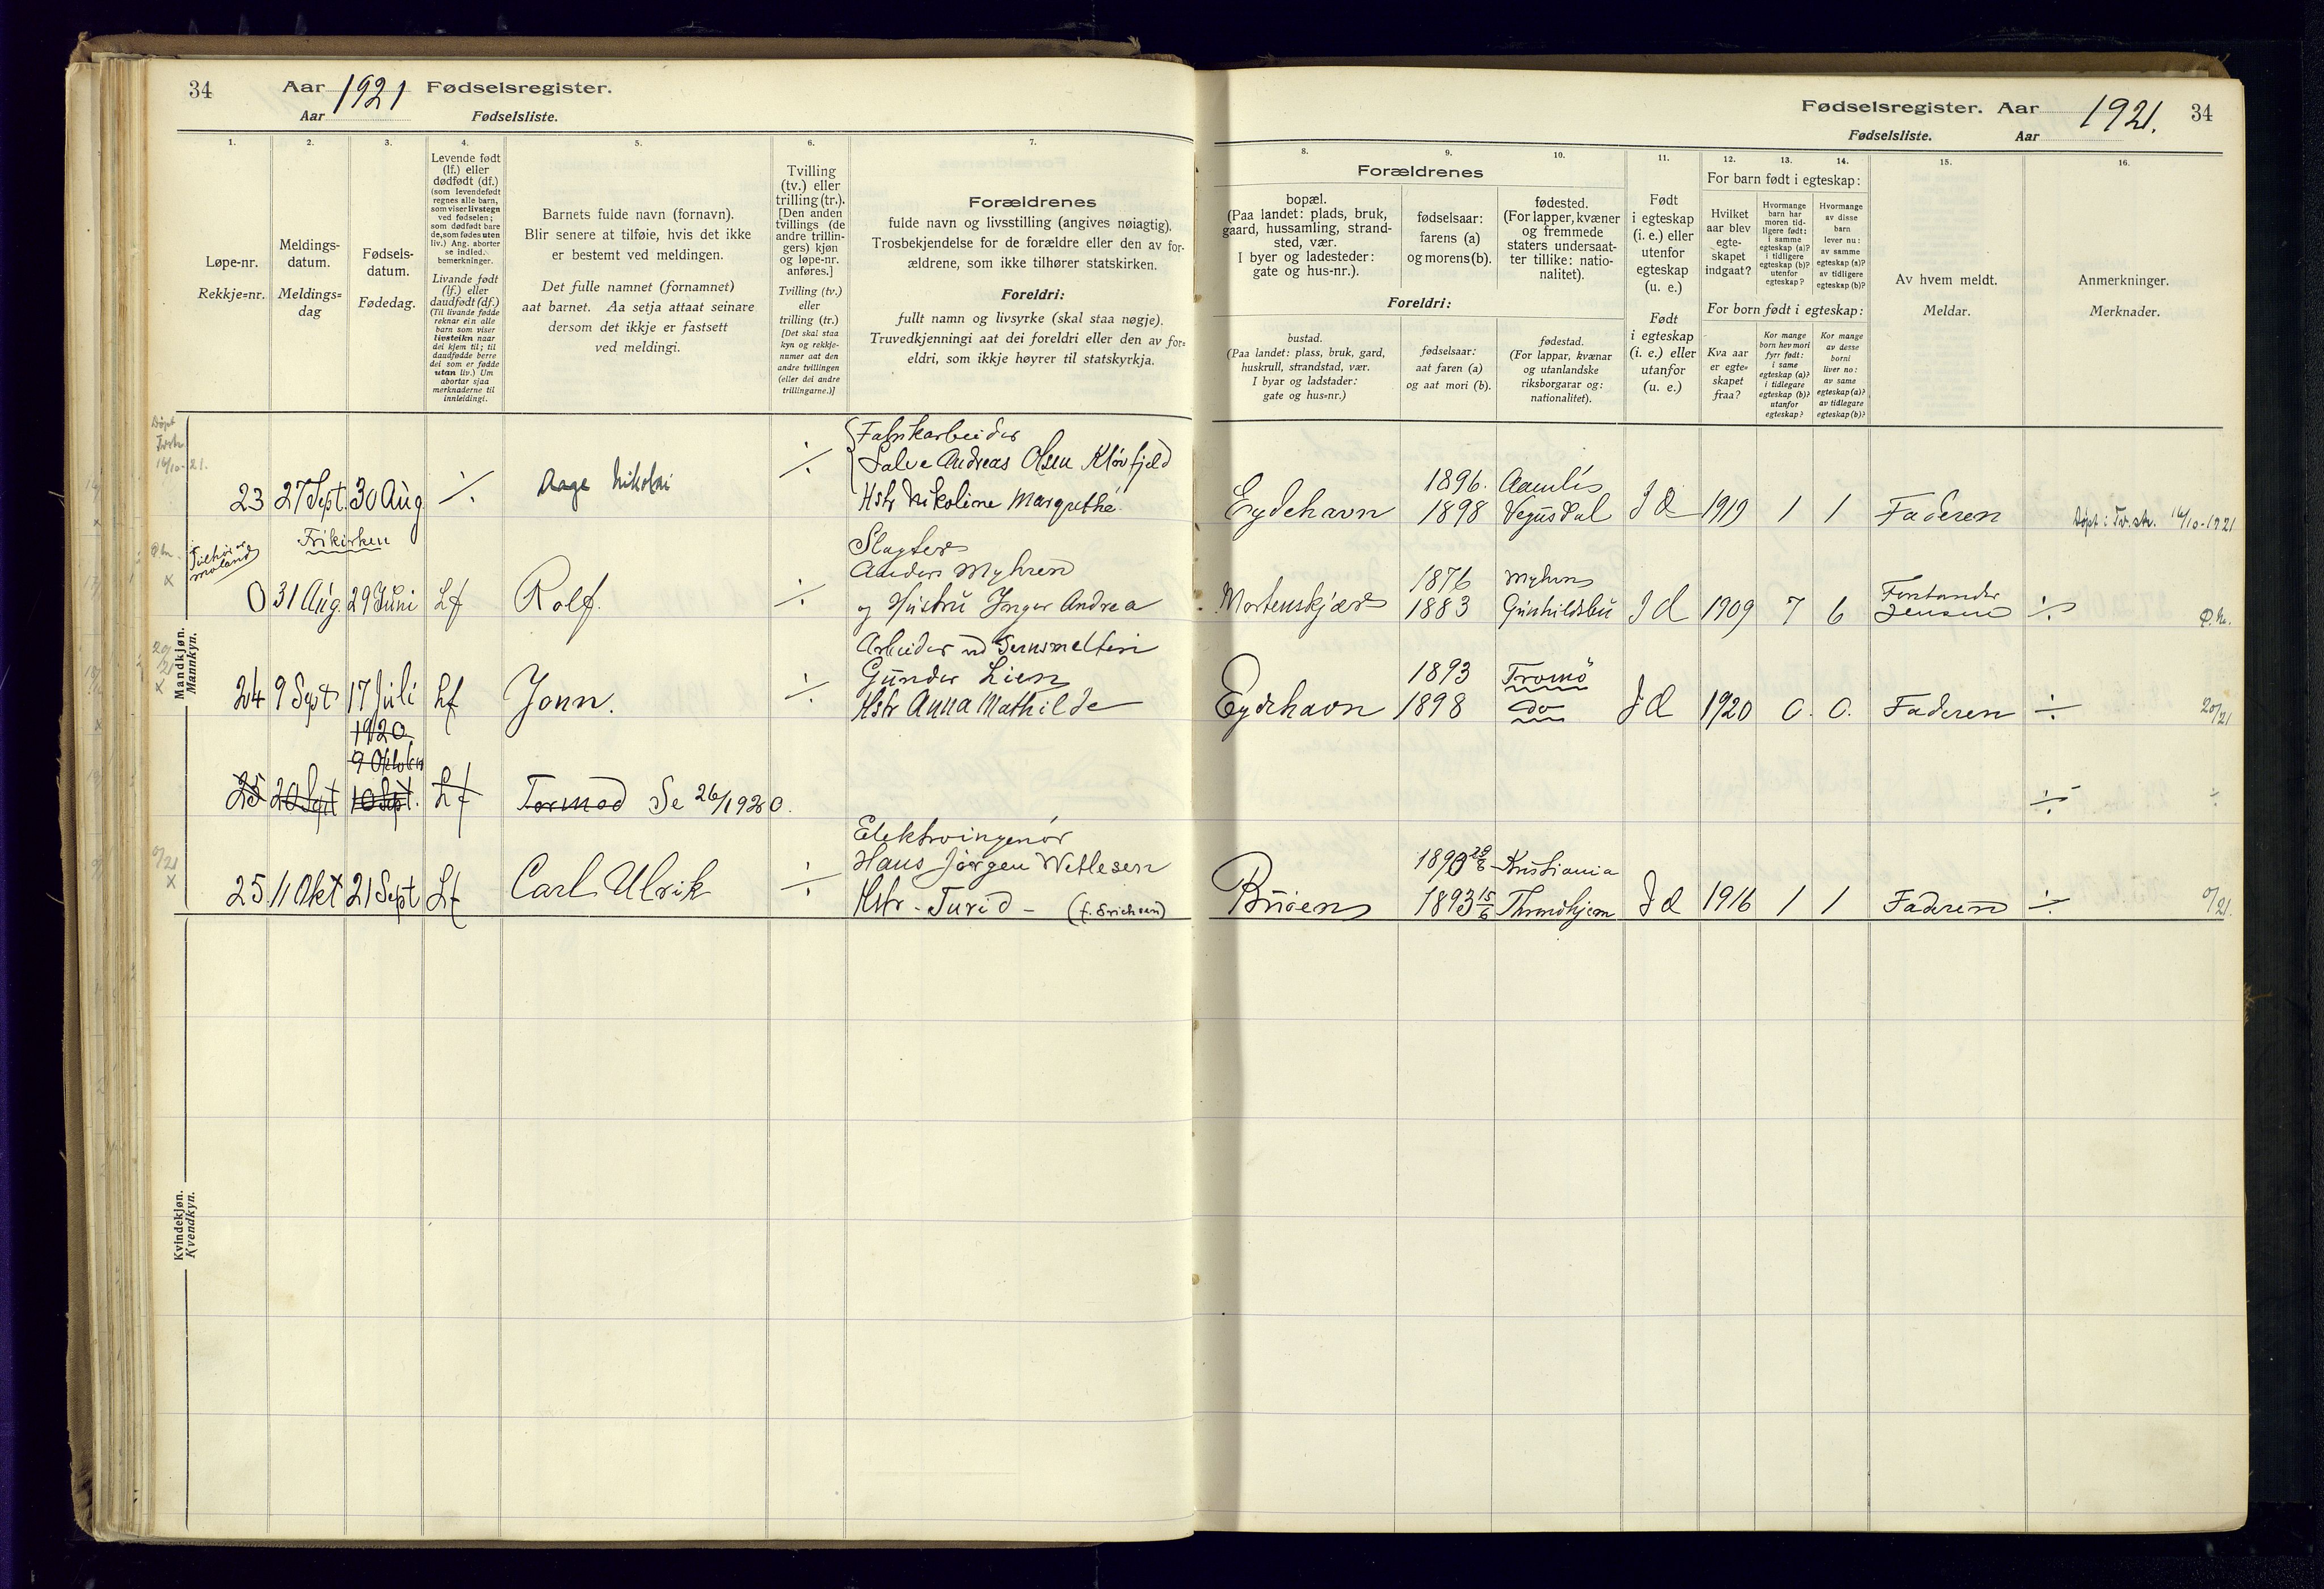 34 Aar 1921 Fødselsregister.
Aar Fødselsliste.
Fødselsregister. Aar 1921. 34
Fødselsliste. Aar
1.
Løpe-nr.
Rekkje=nr.
2.
Meldings-
datum.
Meldings=
dag
3.
Fødsels-
datum.
Fødedag.
4.
Levende født
(lf.) eller
dødfødt (df.)
(som levendefødt
regnes alle barn,
som viser livstegn
ved fødselen;
som dødfødt bare
de, som fødes uten
liv.) Ang. aborter
se indled.
bemerkninger.
Livande født
(lf.) eller
daudfødt (df.)
(Til livande fødde
reknar ein alle
barn som viser
livsteikn naar
dei kjem til; til
daudfødde berre
dei som er fødde
utan liv.) Um
abortar sjaa
merknaderne til
innleidingi.
5.
Barnets fulde navn (fornavn).
Blir senere at tilføie, hvis det ikke
er bestemt ved meldingen.
Det fulle namnet (fornamnet)
aat barnet. Aa setja attaat seinare
dersom det ikkje er fastsett
ved meldingi.
6.
Tvilling
(tv.) eller
trilling (tr.).
[Den anden
tvillings (de
andre trillin-
gers) kjøn
og løpe-nr.
anføres.]
Tvilling (tv.)
eller
trilling (tr.)
[Det skal staa
kyn og rekkje-
numer aat den
andre tvillingen
(eller dei andre
trillingarne.)]
7.
Forældrenes
fulde navn og livsstilling (angives nøiagtig).
Trosbekjendelse for de forældre eller den av for-
ældrene, som ikke tilhører statskirken.
Foreldri:
fullt namn og livsyrke (skal staa nøgje).
Truvedkjenningi aat dei foreldri eller den av for=
eldri, som ikkje høyrer til statskyrkja.
Forældrenes
8.
bopæl.
(Paa landet: plads, bruk,
gaard, hussamling, strand-
sted, vær.
I byer og ladesteder:
gate og hus-nr.).
9.
fødselsaar:
farens (a)
og morens (b).
10.
fødested.
(For lapper, kvæner
og fremmede
staters undersaat-
ter tillike: natio-
nalitet).
Foreldri:
bustad.
(Paa landet: plass, bruk, gard,
huskrull, strandstad, vær.
I byar og ladstader:
gate og hus=nr.)
fødselsaar:
aat faren (a)
og aat mori (b).
fødestad.
(For lappar, kvænar
og utanlandske
riksborgarar og:
nationalitet).
11.
Født
i egteskap
(i. e.) eller
utenfor
egteskap
(u. e.)
Født
i egteskap
(i. e.) eller
utanfor
(u. e.)
12. 13. 14.
For barn født i egteskap:
Hvilket
aar blev
egte-
skapet
indgaat?
Hvormange
barn har
moren tid-
ligere født:
i samme
egteskap (a)?
i tidligere
egteskap (b)?
utenfor
egteskap?
Hvormange
av disse
barn
lever nu:
av samme
egteskap (a)?
av tidligere
egteskap (b)?
For born født i egteskap:
Kva aar
er egte=
skapet
fraa?
Kor mange
born hev mori
fyrr født:
i same
egteskap (a)?
i tidlegare
egteskap (b)?
utanfor
egteskap?
Kor mange
av desse
borni
liver no:
av same
egteskap (a)?
av tidlegare
egteskap (b)?
15.
Av hvem meldt.
Meldar.
16.
Anmerkninger.
Merknader.
Mandkjøn.
Mannkyn.
Døpt
16/10-21.
Fabrikarbeider
23 27 Sept. 30 Aug ·/. Aage Nikolai ÷ Salve Andreas Olsen Kløvfjeld
Hstr Nikoline Margrethe
1896. Aamlis
Eydehavn 1898 Vegusdal I E 1919 1 1 Faderen Døpt i Tv.str. 16/10-1921
Frikirken
Slagter
Anders Myhren
0 31 Aug. 29 Juni Lf Rolf. ÷ og Hustru Inger Andrea
1876 Myhren
Mortenskjær 1883 Gunhildsbu I E 1909 7 6 Forstander
Jensen ÷
Arbeider ved Jernsmelten
24 9 Sept 17 Juli Lf Jonn. ÷ Gunder Lien
Hstr Anna Mathilde
1893 Tromö
Eydehavn 1898 do I E 1920 0. 0. Faderen ÷ 20/21
1920
9 Oktober
25 20 Sept 10 Sept. Lf Tormod Se 26/1920. ÷
Elektroingeniör
25 11 Okt 21 Sept Lf Carl Ulrik ÷ Hans Jörgen Wetlesen
Hstr - Turid - (f. Erichsen)
1890 Kristiania
Buöen 1893 15/6 Throndhjem I E 1916 1 1 Faderen ÷ 0/21.
Kvindekjøn.
Kvendkyn.